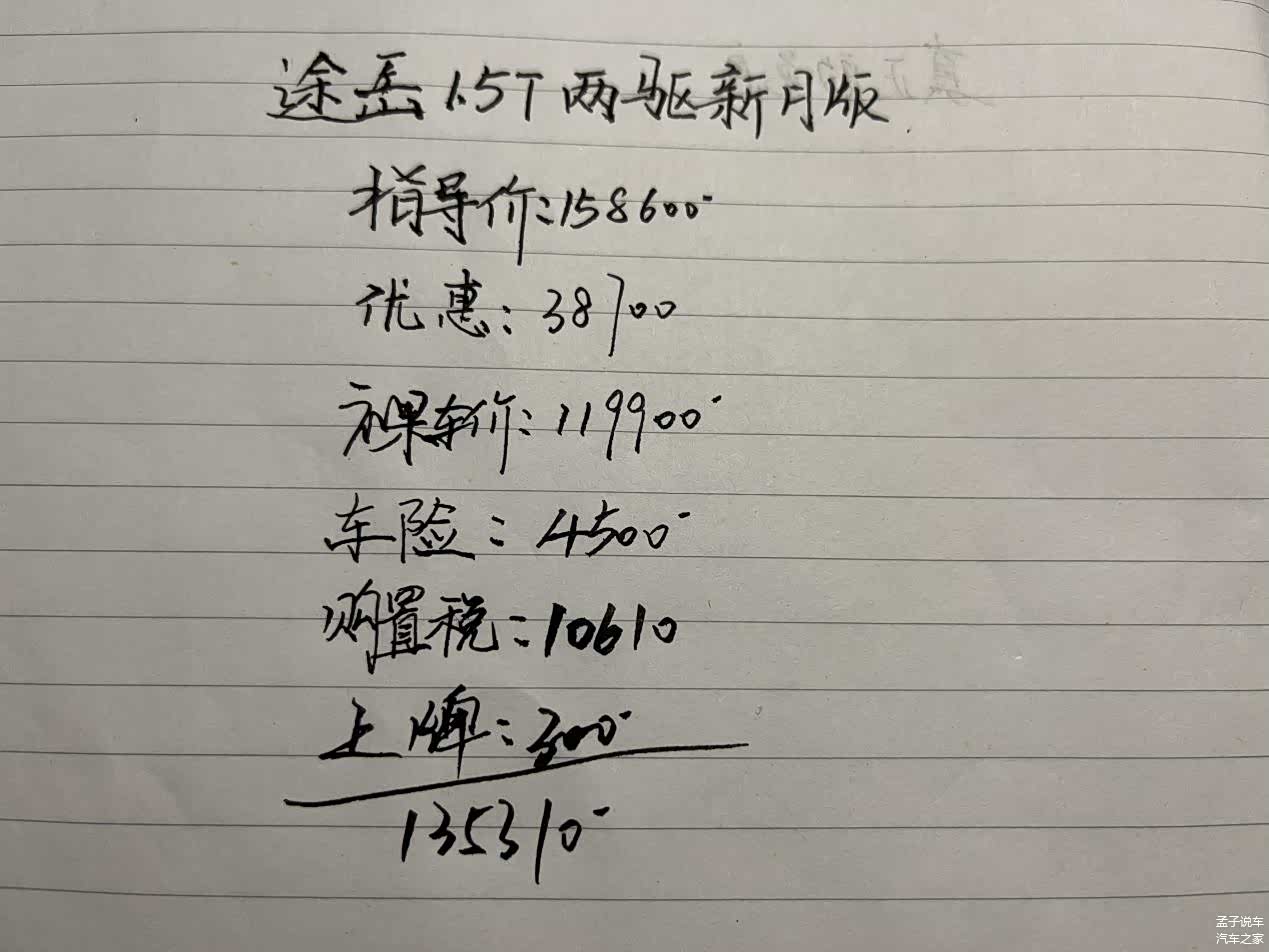 途岳1.5T两驱新月版
指导价:158600-
优惠:38700
裸车价:119900-
车险:4500-
购置税:10610
上牌:300-
135310-
孟子说车
汽车之家